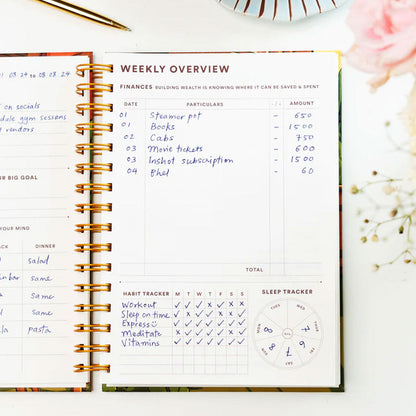 01 08 24 to 08 08 24
on socials
gym sessions
vendors
BIG GOAL
YOUR MIND
DINNER
salad
same
same
same
pasta
WEEKLY OVERVIEW
FINANCES BUILDING WEALTH IS KNOWING WHERE IT CAN BE SAVED & SPENT
DATE PARTICULARS - / + AMOUNT
01 Steamer pot - 650
01 Books - 1500
02 Cabs - 750
03 Movie tickets - 600
03 Inshot subscription - 1500
04 Bhel - 60
TOTAL
HABIT TRACKER M T W T F S S
Workout ✓ ✓ ✓ x ✓ x x
Sleep on time
Express
Meditate
Vitamins
SLEEP TRACKER
MON
TUE
WED
THU
FRI
SAT
SUN
8
8
7
6
7